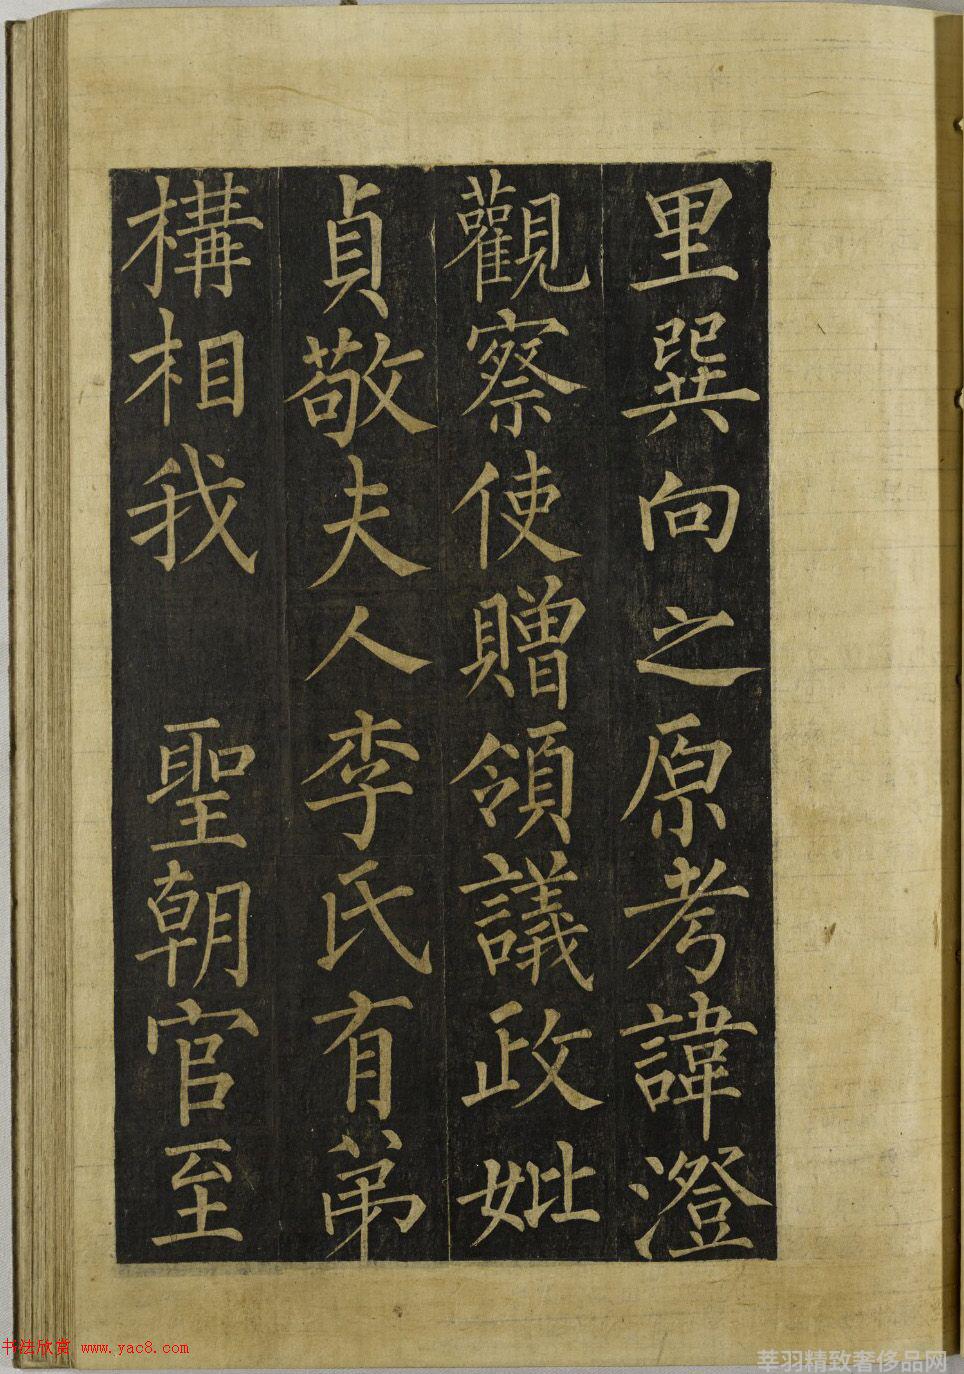 里巽向之原考諱澄
觀察使贈領議政妣
貞敬夫人李氏有弟
構相我 聖朝官至
书法欣赏 www.yac8.com
莘羽精致奢侈品网